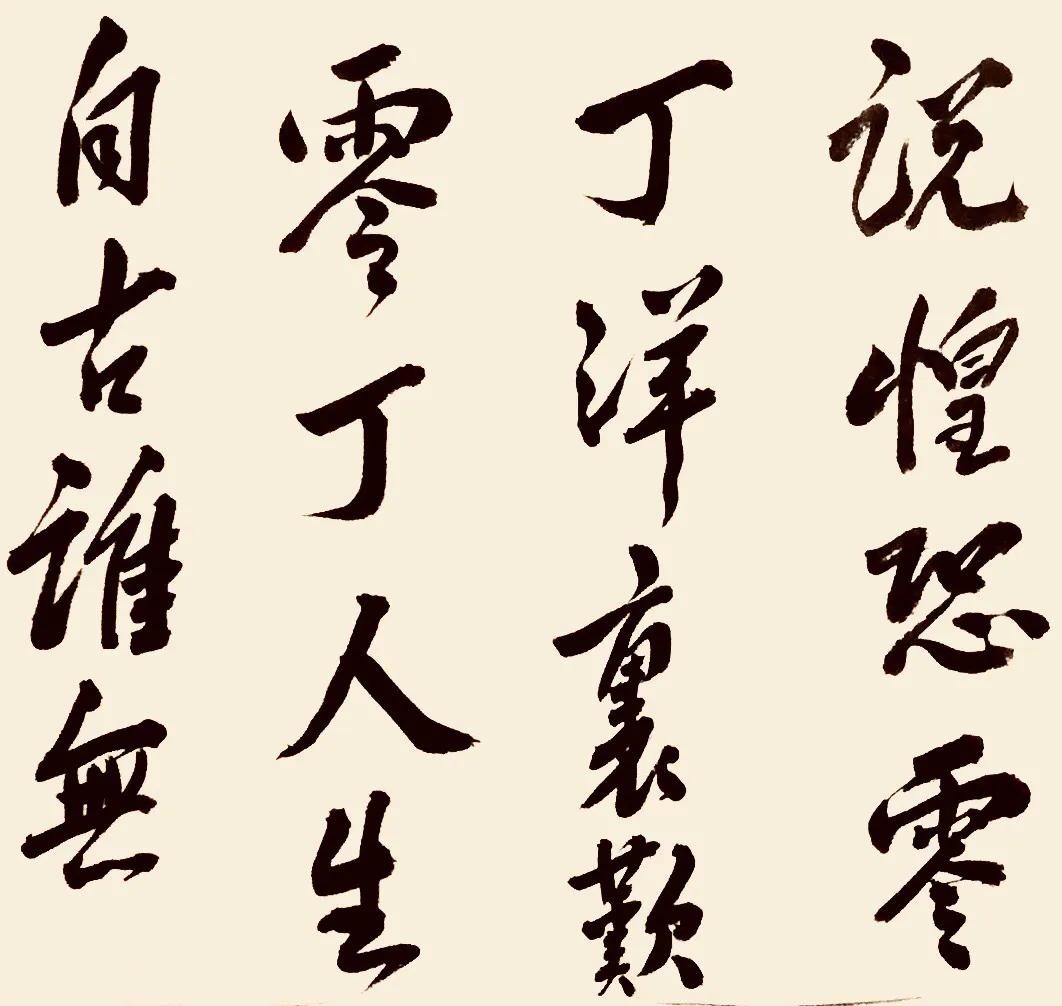 説惶恐零
丁洋裏歎
零丁人生
自古誰無